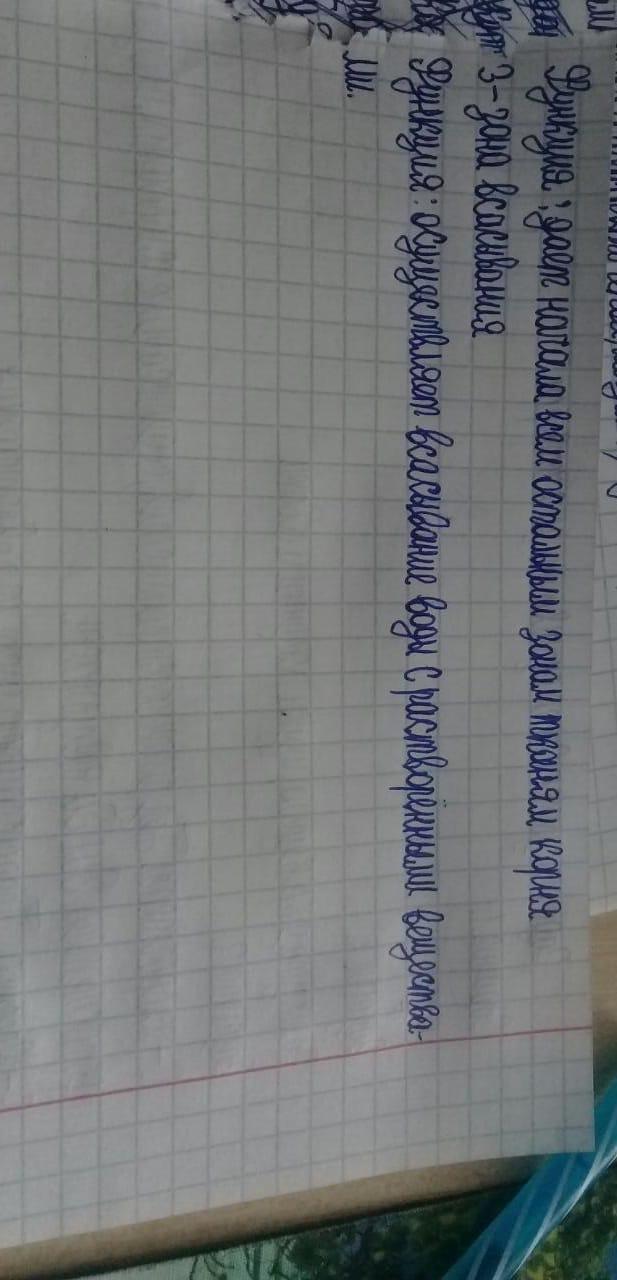 Функция: даёт начала всем остальным зонам тканям корня
3-зона всасывания
Функция: осуществляет всасывание воды с растворёнными вещества-
ми.